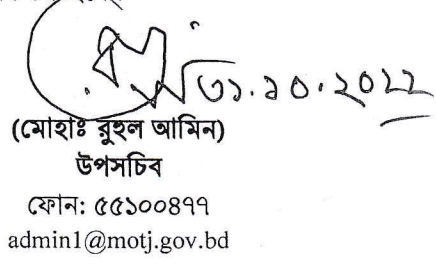 ৩১.১০.২০২২
(মোহাঃ রুহুল আমিন)
উপসচিব
ফোন: ৫৫১০০৪৭৭
admin1@motj.gov.bd